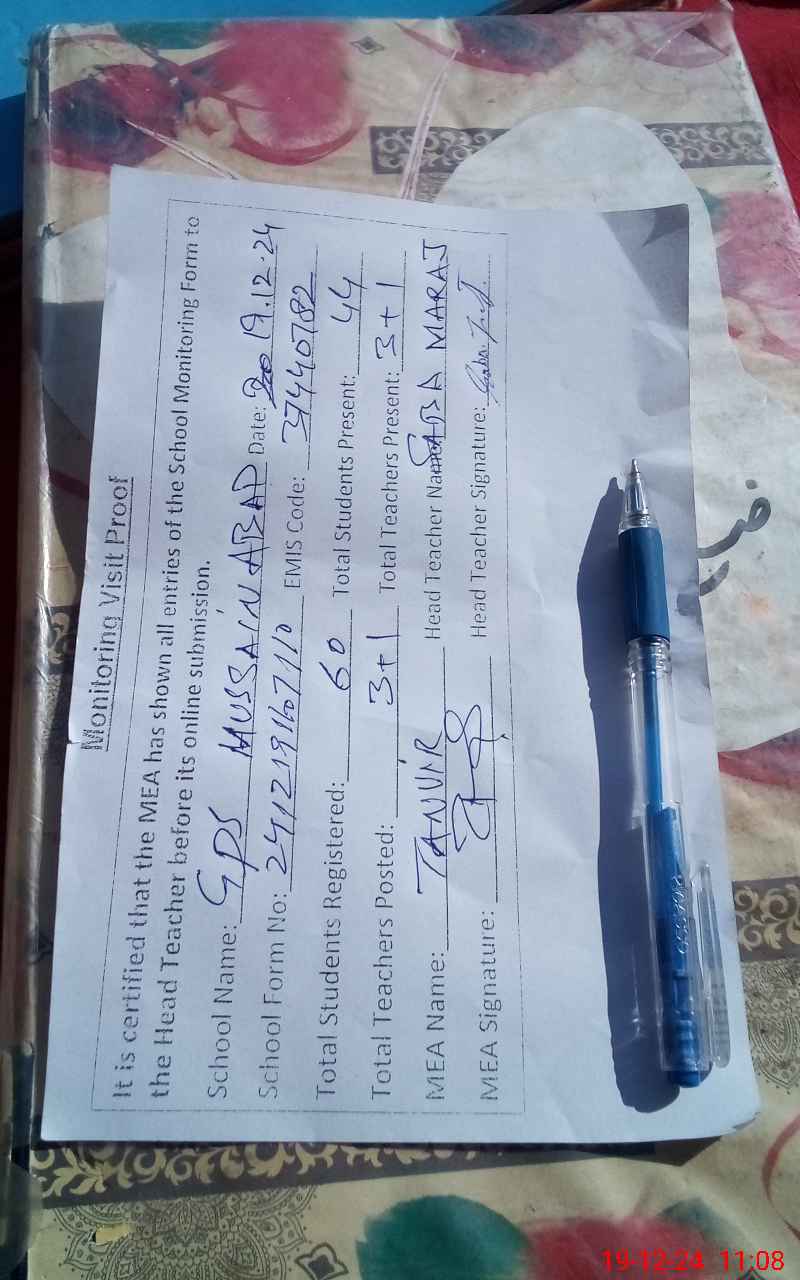 Monitoring Visit Proof
It is certified that the MEA has shown all entries of the School Monitoring Form to
the Head Teacher before its online submission.
School Name: GPS HUSSAIN ABAD Date: 19.12.24
School Form No: EMIS Code: 37440782
Total Students Registered: 60 Total Students Present: 44
Total Teachers Posted: 3+1 Total Teachers Present: 3+1
MEA Name: TANVIR Head Teacher Name: SABA MARAJ
MEA Signature: Head Teacher Signature:
19-12-24 11:08